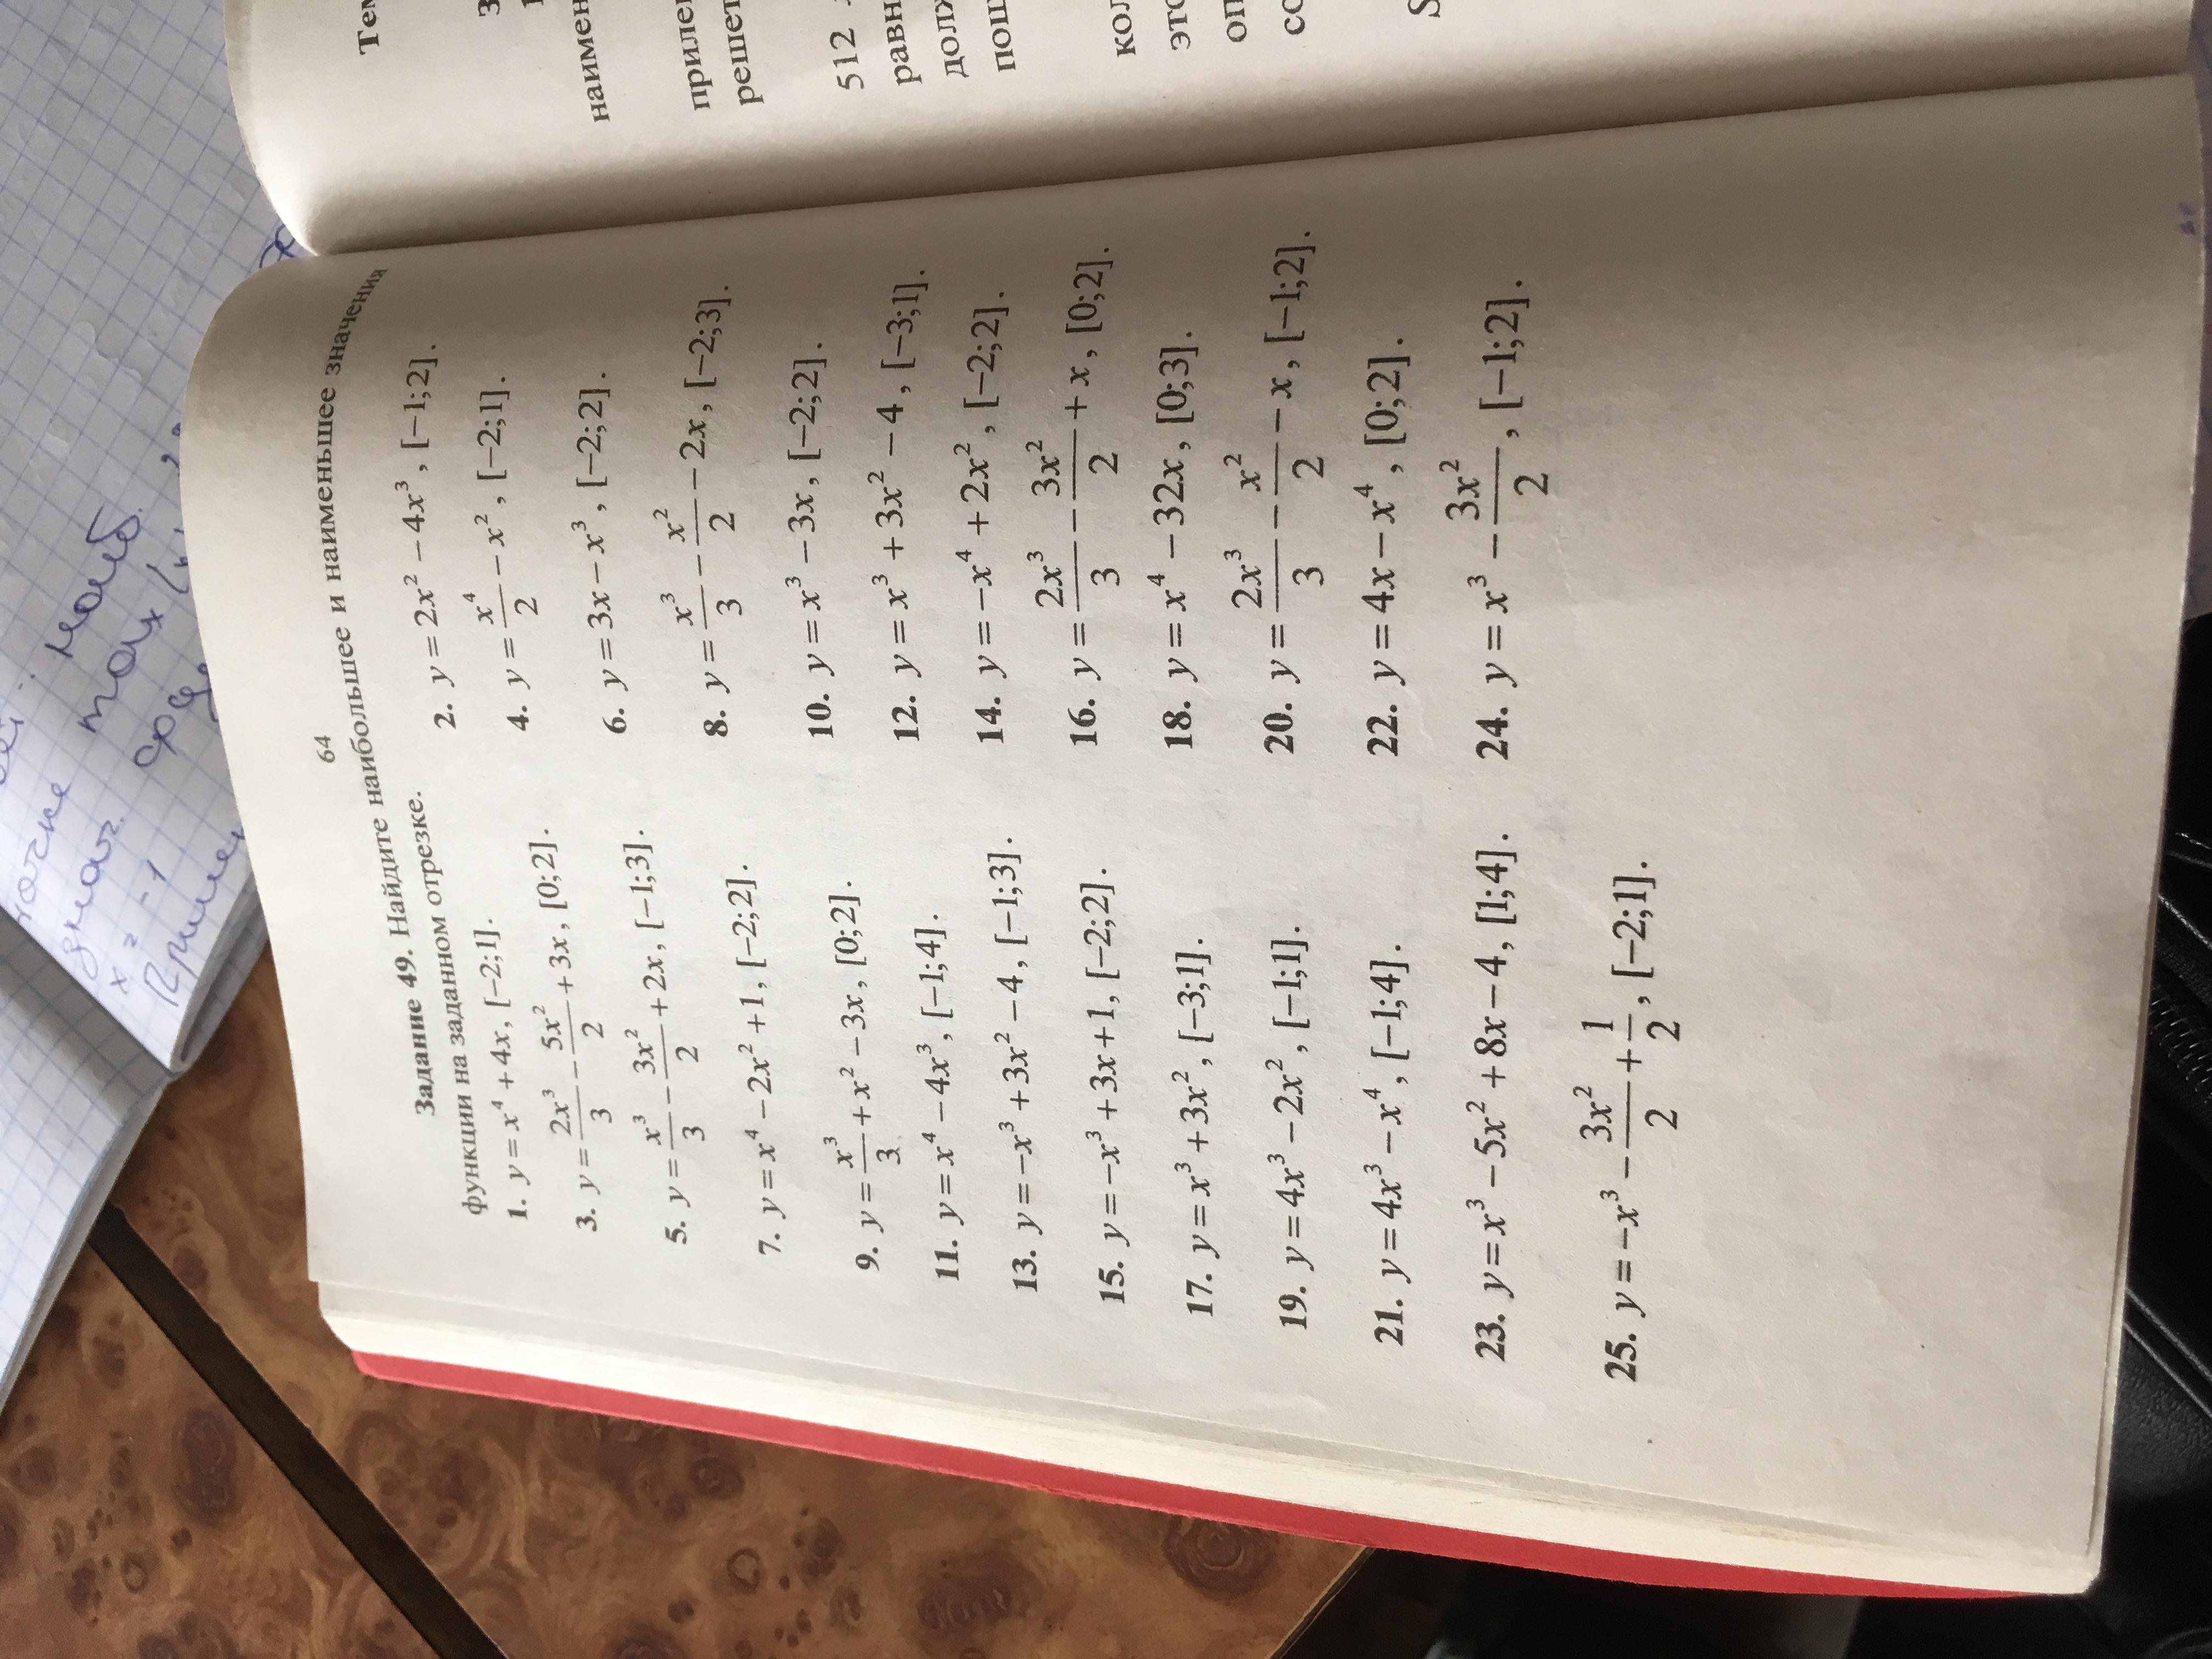 64
Задание 49. Найдите наибольшее и наименьшее значения
функции на заданном отрезке.
1. y = x⁴ + 4x, [−2;1]. 2. y = 2x² − 4x³, [−1;2].
3. y = 2x³/3 − 5x²/2 + 3x, [0;2]. 4. y = x⁴/2 − x², [−2;1].
5. y = x³/3 − 3x²/2 + 2x, [−1;3]. 6. y = 3x − x³, [−2;2].
7. y = x⁴ − 2x² + 1, [−2;2]. 8. y = x³/3 − x²/2 − 2x, [−2;3].
9. y = x³/3 + x² − 3x, [0;2]. 10. y = x³ − 3x, [−2;2].
11. y = x⁴ − 4x³, [−1;4]. 12. y = x³ + 3x² − 4, [−3;1].
13. y = −x³ + 3x² − 4, [−1;3]. 14. y = −x⁴ + 2x², [−2;2].
15. y = −x³ + 3x + 1, [−2;2]. 16. y = 2x³/3 − 3x²/2 + x, [0;2].
17. y = x³ + 3x², [−3;1]. 18. y = x⁴ − 32x, [0;3].
19. y = 4x³ − 2x², [−1;1]. 20. y = 2x³/3 − x²/2 − x, [−1;2].
21. y = 4x³ − x⁴, [−1;4]. 22. y = 4x − x⁴, [0;2].
23. y = x³ − 5x² + 8x − 4, [1;4]. 24. y = x³ − 3x²/2, [−1;2].
25. y = −x³ − 3x²/2 + 1/2, [−2;1].
наимен
решет
512
равн